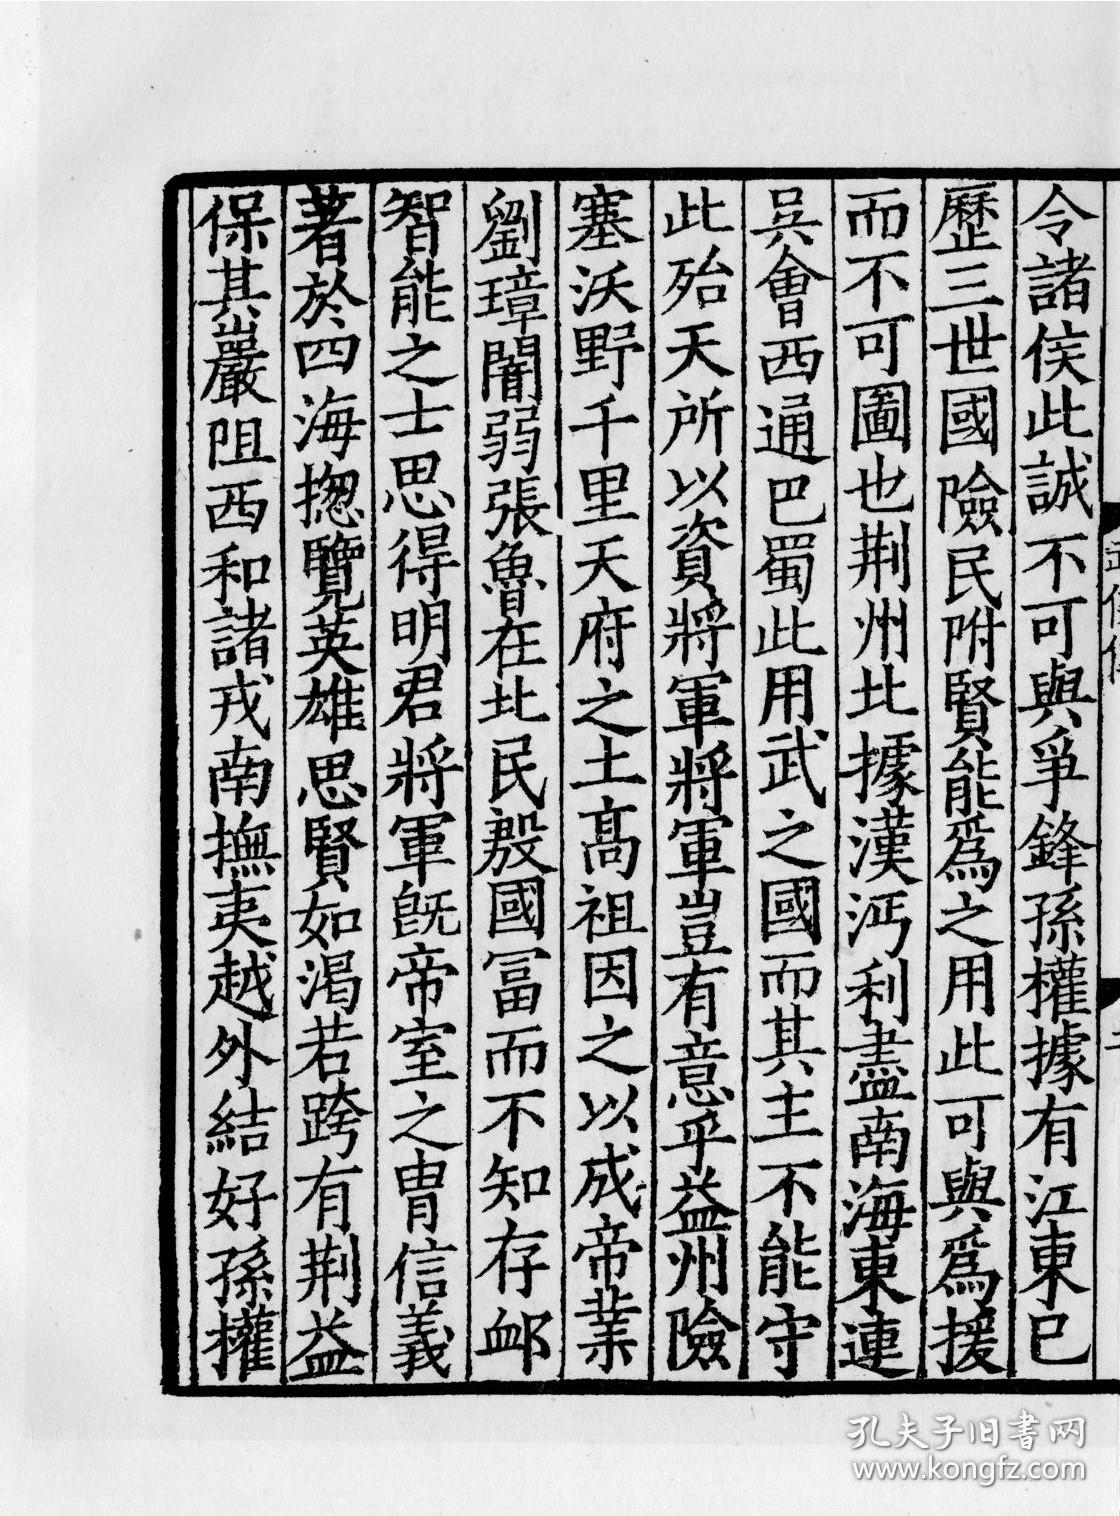 令諸侯此誠不可與爭鋒孫權據有江東已
歷三世國險民附賢能爲之用此可與爲援
而不可圖也荆州北據漢沔利盡南海東連
吳會西通巴蜀此用武之國而其主不能守
此殆天所以資將軍將軍豈有意乎益州險
塞沃野千里天府之土高祖因之以成帝業
劉璋闇弱張魯在北民殷國富而不知存卹
智能之士思得明君將軍旣帝室之胄信義
著於四海揔覽英雄思賢如渴若跨有荆益
保其巖阻西和諸戎南撫夷越外結好孫權
孔夫子旧書网
www.kongfz.com